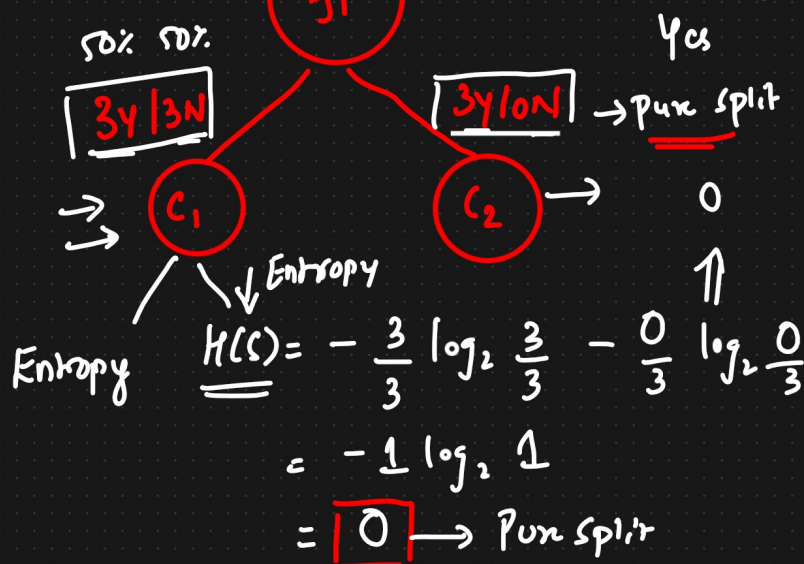 f1
50% 50%
Yes
3Y/3N
3Y/0N → Pure split
C1
C2 → 0
↓ Entropy
Entropy
H(S) = - 3/3 log2 3/3 - 0/3 log2 0/3
= - 1 log2 1
= 0 → Pure split